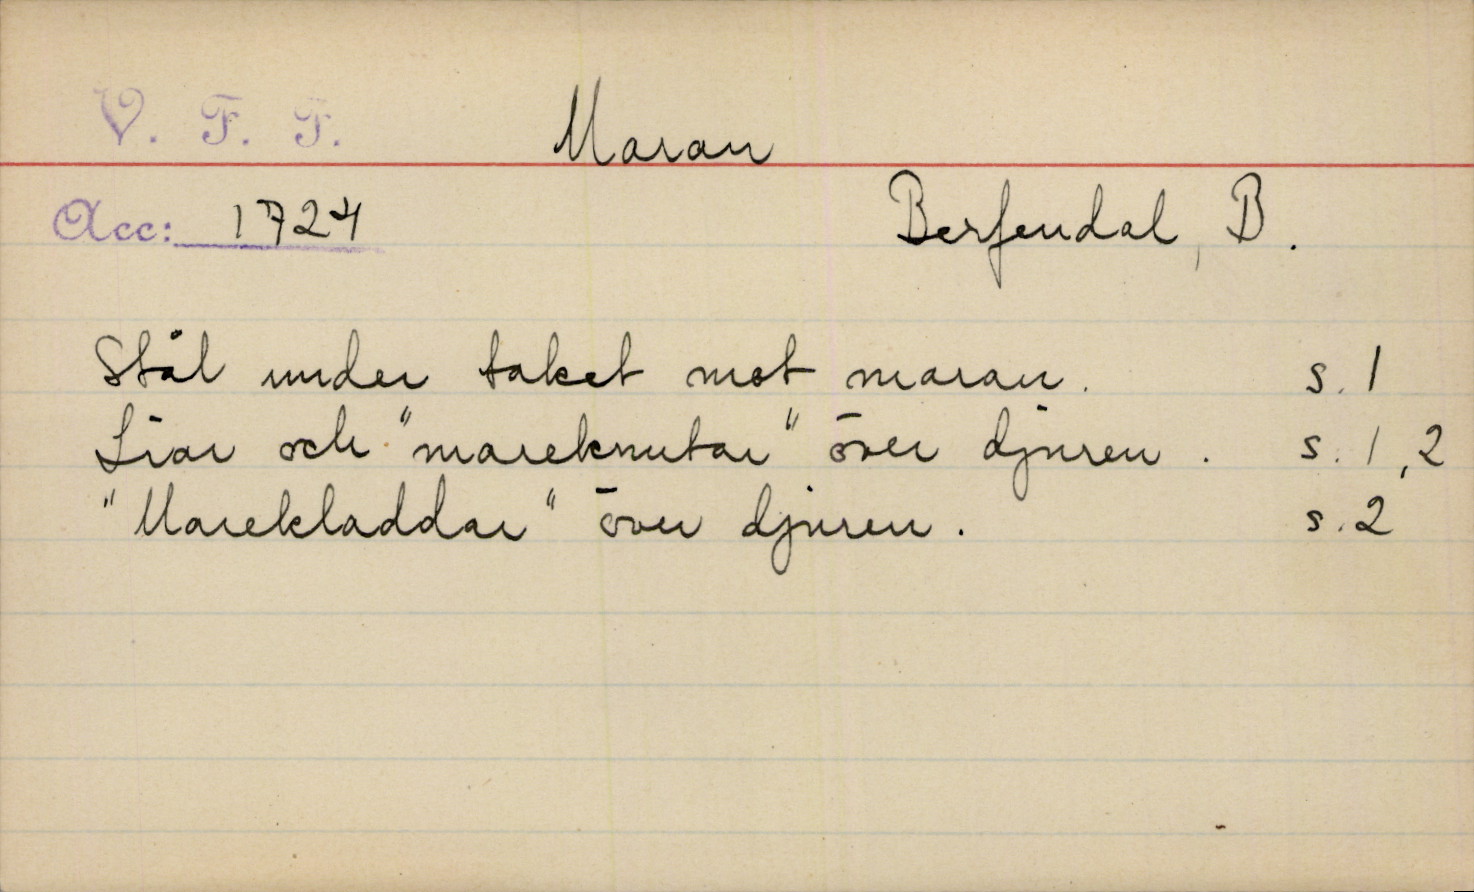 V. F. F. Maran
Acc: 1724 Berfendal, B.
Stål under taket mot maran. s. 1
Liar och "mareknutar" över djuren. s. 1, 2
"Marekladdar" över djuren. s. 2